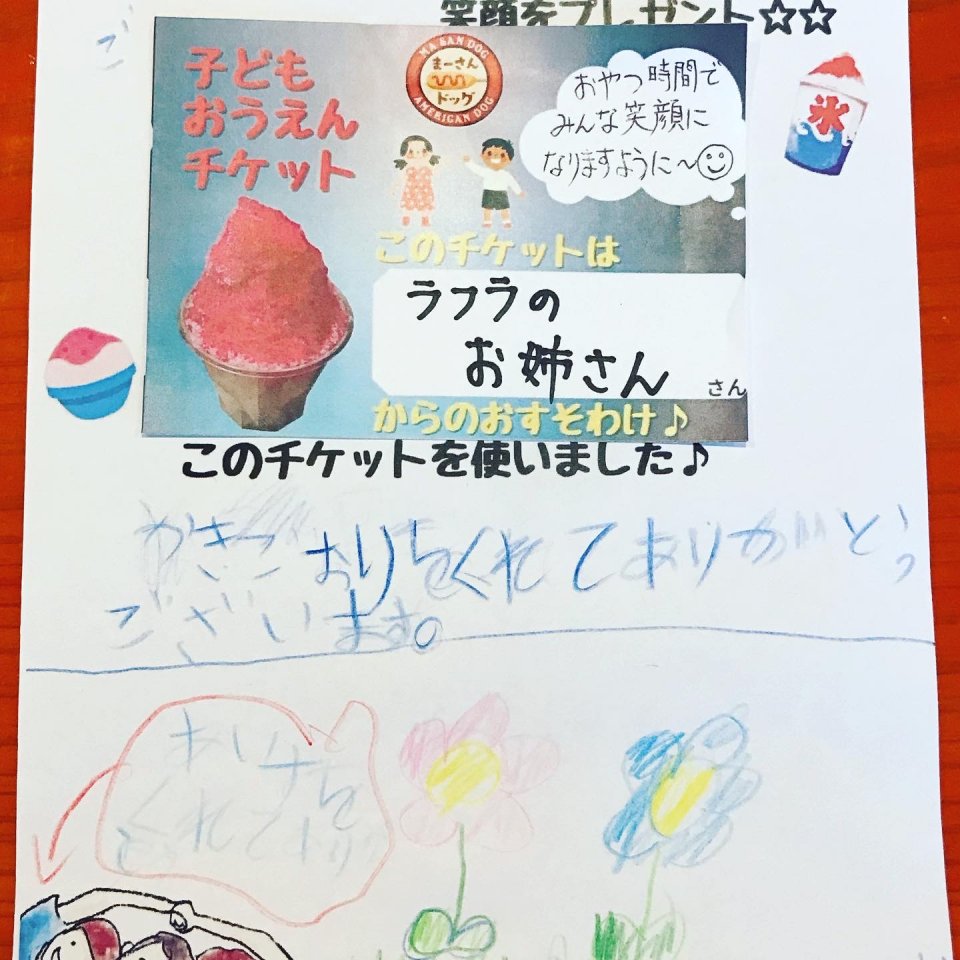 笑顔をプレゼント☆☆
ご
子ども
おうえん
チケット
MA SAN DOG
まーさん
ドッグ
AMERICAN DOG
おやつ時間で
みんな笑顔に
なりますように〜☺
氷
このチケットは
ラフラの
お姉さん
さん
からのおすそわけ♪
このチケットを使いました♪
かきごおりをくれてありがとう
ございます。
くれて